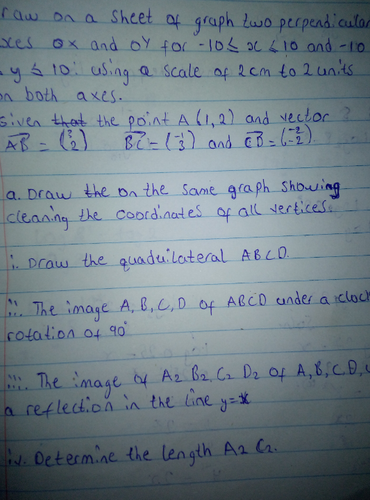 raw on a sheet of graph two perpendicular
xes OX and OY for -10 ≤ x ≤ 10 and -10
≤ y ≤ 10. using a scale of 2cm to 2 units
on both axes.
Given that the point A(1,2) and vector
AB = (2) BC = (-1 3) and CD = (-2 -2).
a. Draw the on the same graph showing
cleaning the coordinates of all vertices.
i. Draw the quaduilateral ABCD.
ii. The image A, B, C, D of ABCD under a clock
rotation of 90°
iii. The image of A2 B2 C2 D2 of A, B, C, D,
a reflection in the line y=x
iv. Determine the length A2 C2.